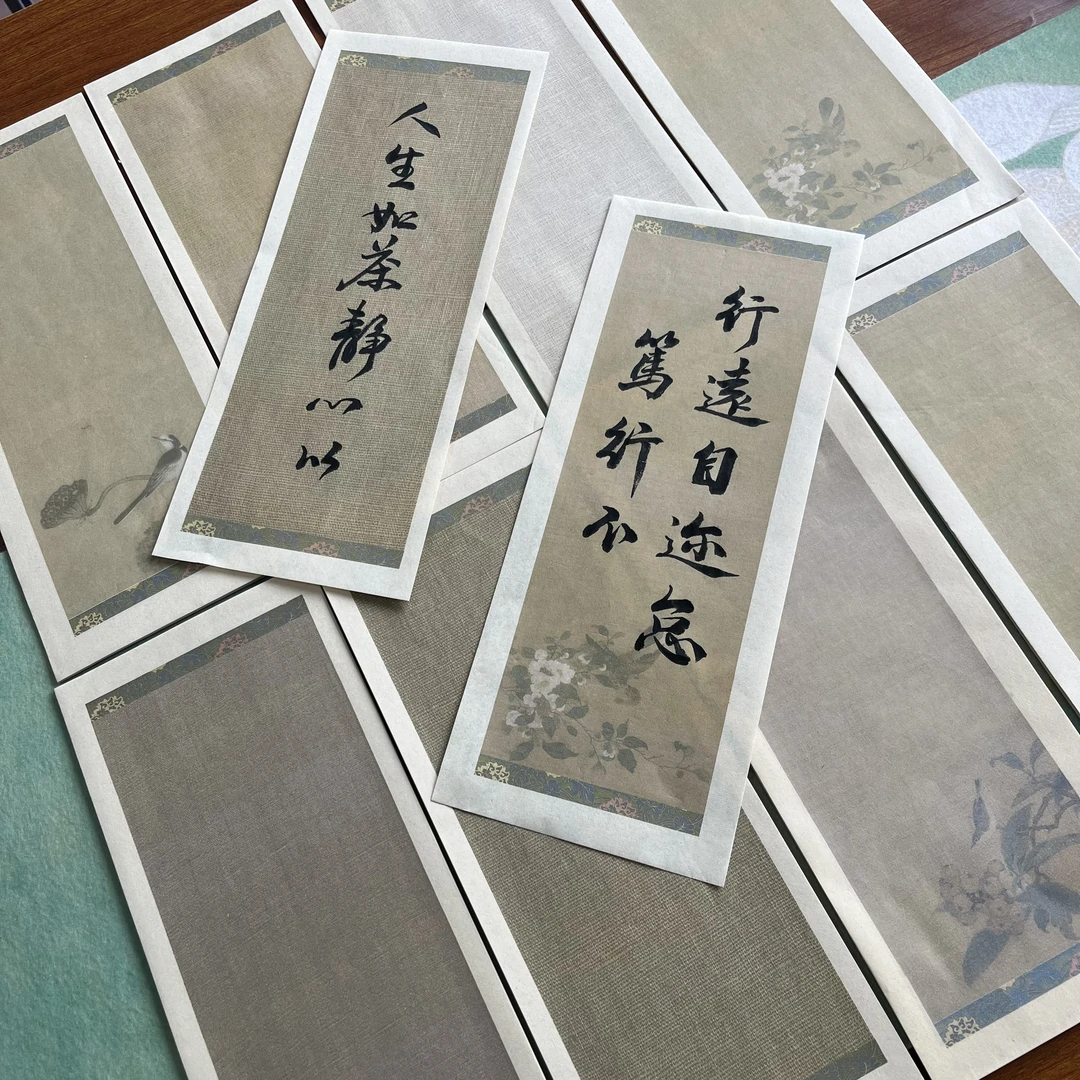 人生如茶静心以
行遠自迩怠
篤行不